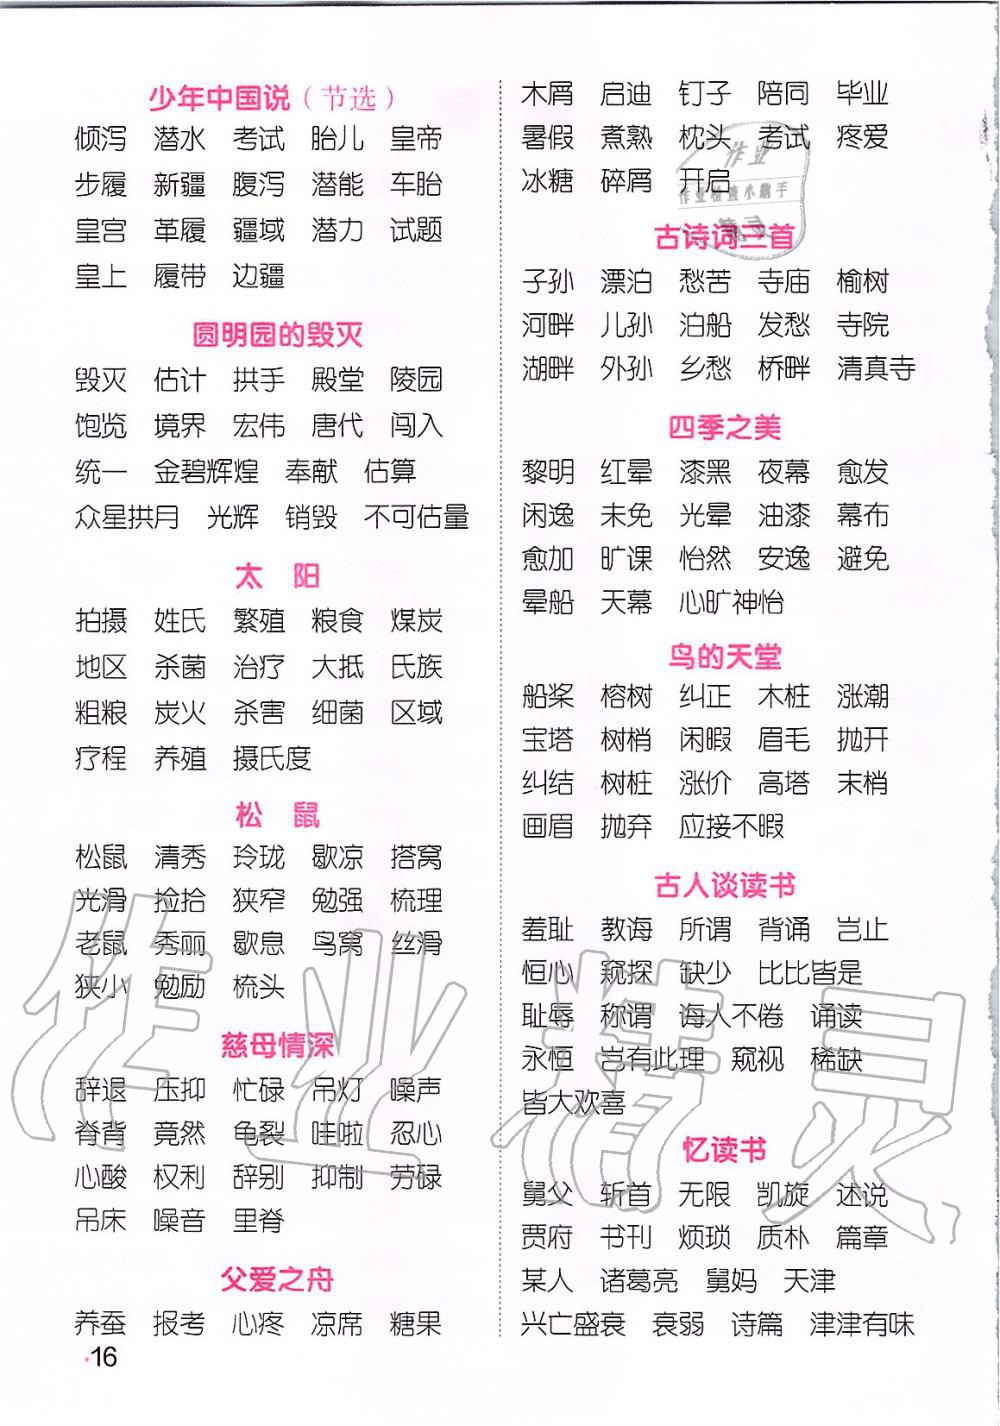 少年中国说（节选）
倾泻 潜水 考试 胎儿 皇帝
步履 新疆 腹泻 潜能 车胎
皇宫 革履 疆域 潜力 试题
皇上 履带 边疆
圆明园的毁灭
毁灭 估计 拱手 殿堂 陵园
饱览 境界 宏伟 唐代 闯入
统一 金碧辉煌 奉献 估算
众星拱月 光辉 销毁 不可估量
太 阳
拍摄 姓氏 繁殖 粮食 煤炭
地区 杀菌 治疗 大抵 氏族
粗粮 炭火 杀害 细菌 区域
疗程 养殖 摄氏度
松 鼠
松鼠 清秀 玲珑 歇凉 搭窝
光滑 捡拾 狭窄 勉强 梳理
老鼠 秀丽 歇息 鸟窝 丝滑
狭小 勉励 梳头
慈母情深
辞退 压抑 忙碌 吊灯 噪声
脊背 竟然 龟裂 哇啦 忍心
心酸 权利 辞别 抑制 劳碌
吊床 噪音 里脊
父爱之舟
养蚕 报考 心疼 凉席 糖果
·16
木屑 启迪 钉子 陪同 毕业
暑假 煮熟 枕头 考试 疼爱
冰糖 碎屑 开启
作业
作业检查小助手
精灵
古诗词三首
子孙 漂泊 愁苦 寺庙 榆树
河畔 儿孙 泊船 发愁 寺院
湖畔 外孙 乡愁 桥畔 清真寺
四季之美
黎明 红晕 漆黑 夜幕 愈发
闲逸 未免 光晕 油漆 幕布
愈加 旷课 怡然 安逸 避免
晕船 天幕 心旷神怡
鸟的天堂
船桨 榕树 纠正 木桩 涨潮
宝塔 树梢 闲暇 眉毛 抛开
纠结 树桩 涨价 高塔 末梢
画眉 抛弃 应接不暇
古人谈读书
羞耻 教诲 所谓 背诵 岂止
恒心 窥探 缺少 比比皆是
耻辱 称谓 诲人不倦 诵读
永恒 岂有此理 窥视 稀缺
皆大欢喜
忆读书
舅父 斩首 无限 凯旋 述说
贾府 书刊 烦琐 质朴 篇章
某人 诸葛亮 舅妈 天津
兴亡盛衰 衰弱 诗篇 津津有味
作业精灵